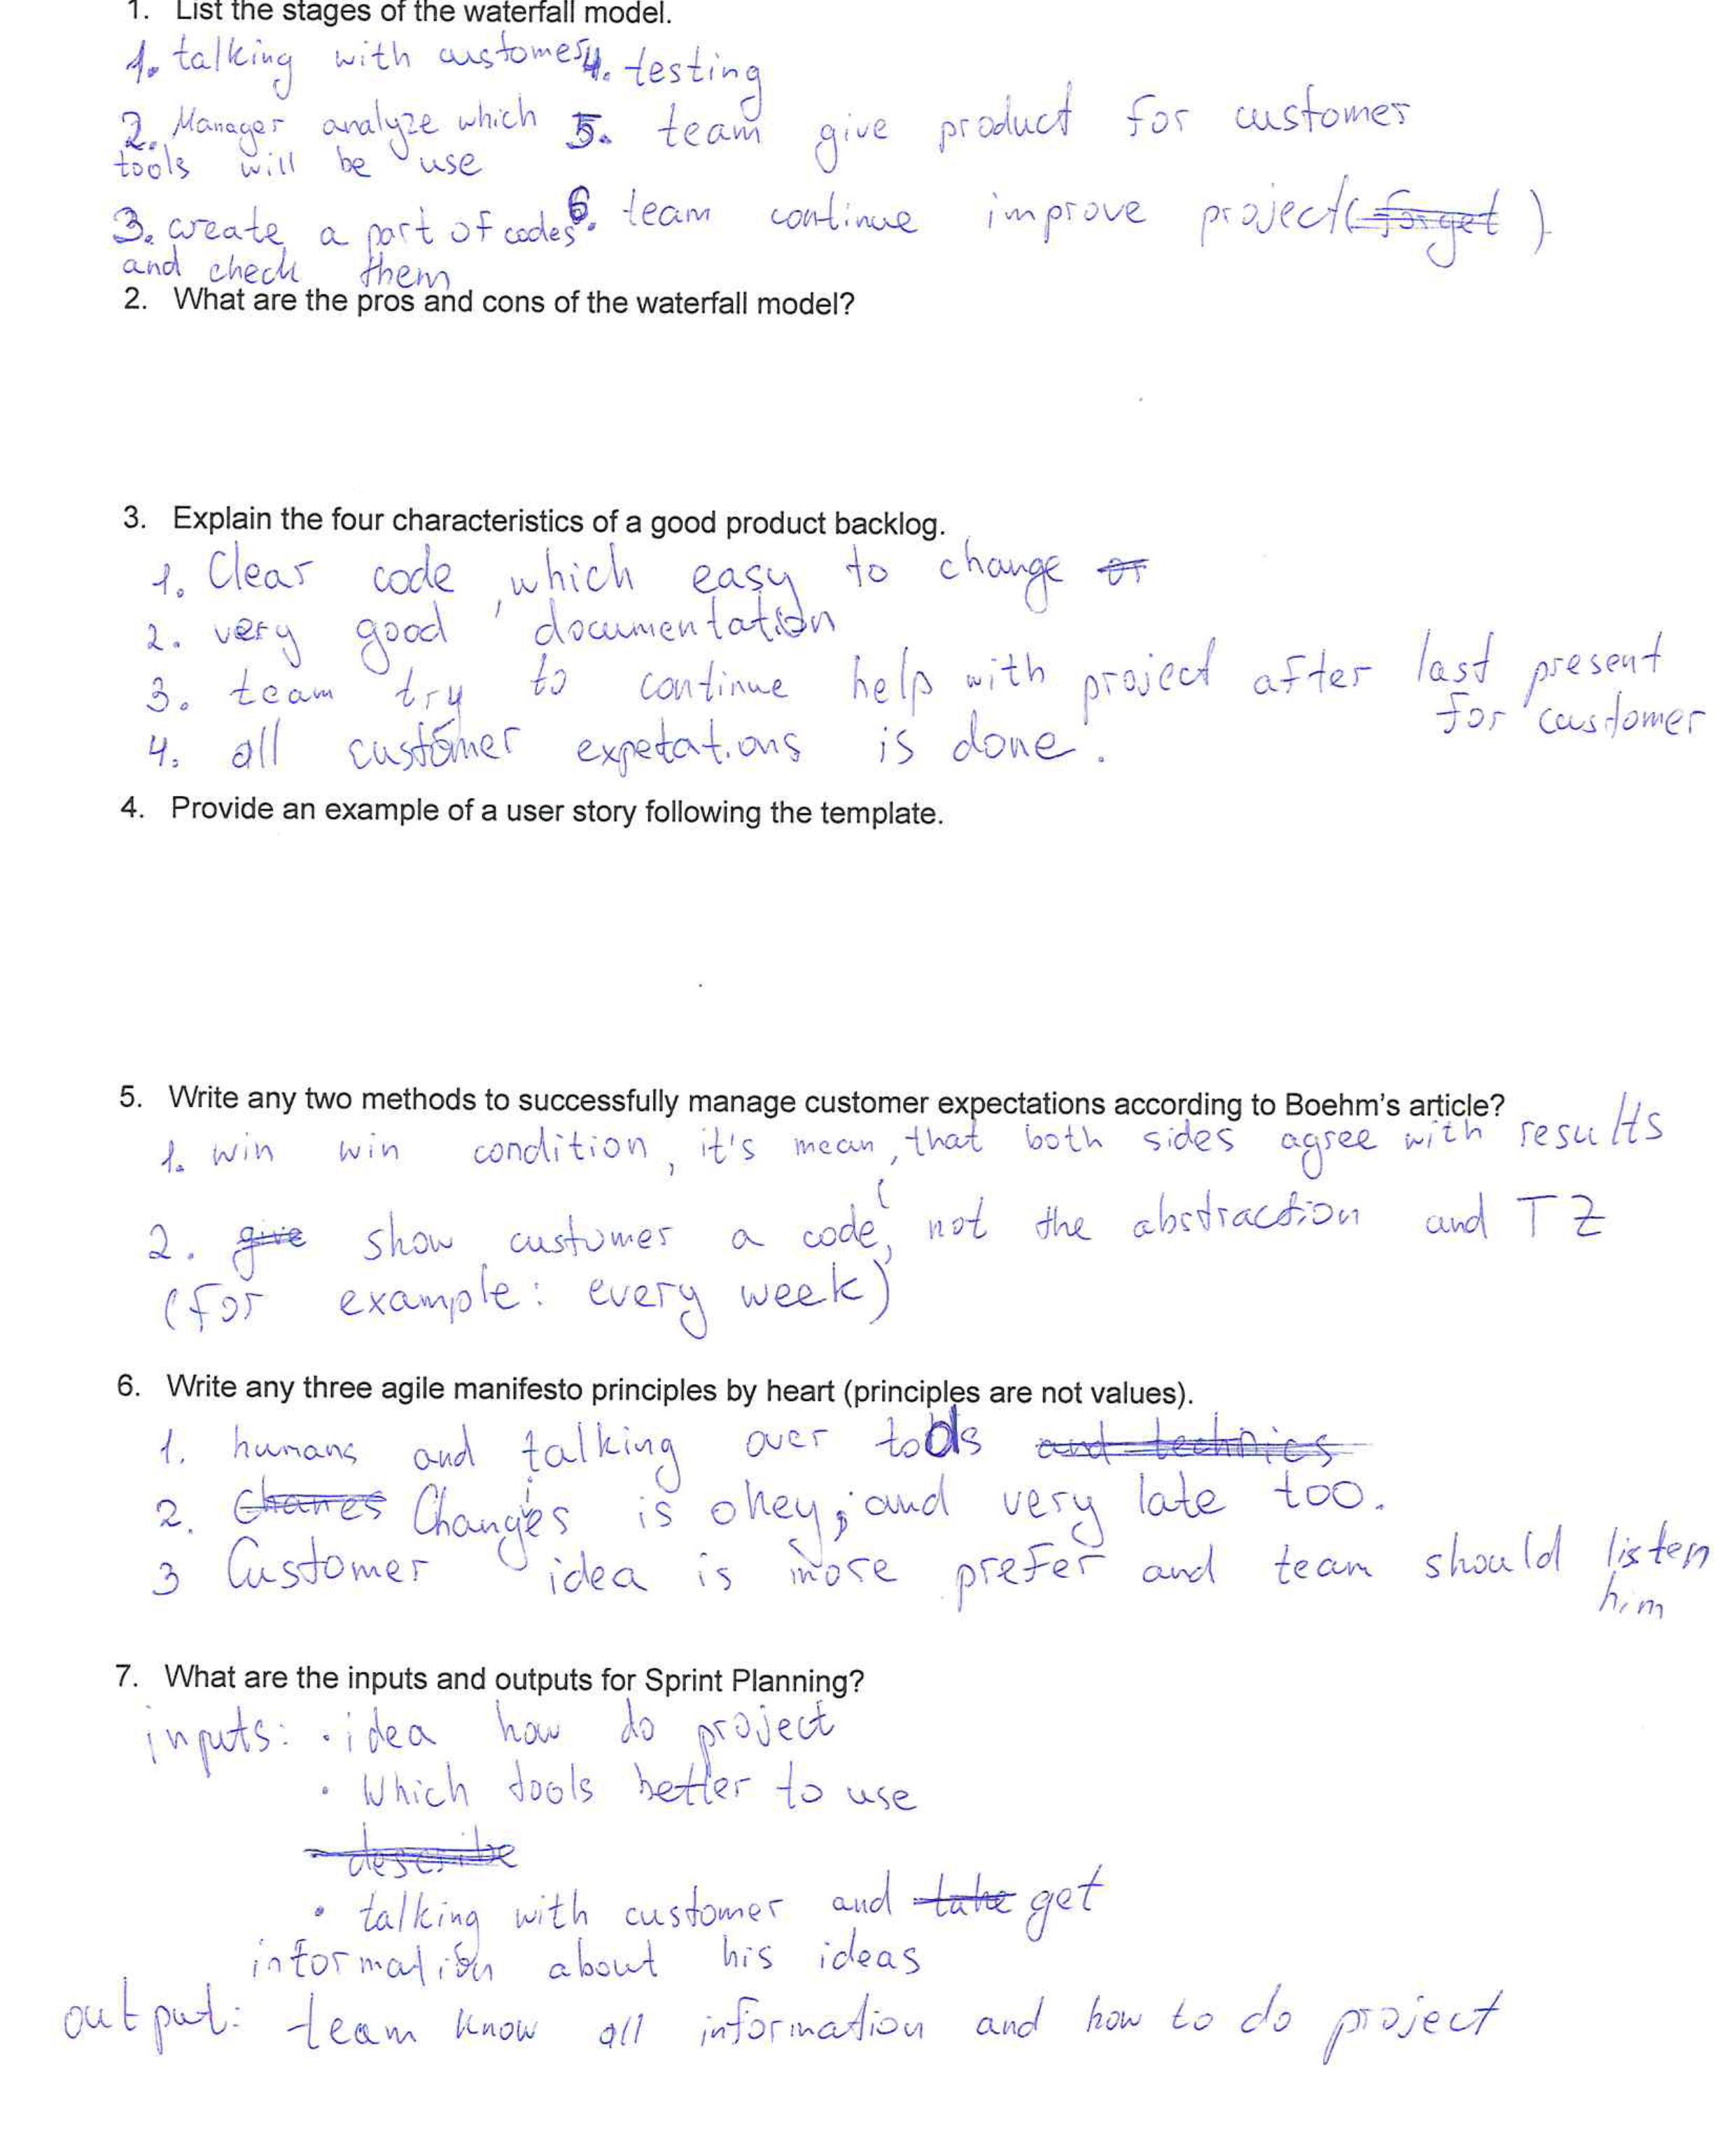 1. List the stages of the waterfall model.
1. talking with customer 4. testing
2. Manager analyze which 5. team give product for customer
tools will be use
3. create a part of codes 6. team continue improve project (forget)
and check them
2. What are the pros and cons of the waterfall model?
3. Explain the four characteristics of a good product backlog.
1. Clear code, which easy to change or
2. very good documentation
3. team try to continue help with project after last present
for customer
4. all customer expetations is done.
4. Provide an example of a user story following the template.
5. Write any two methods to successfully manage customer expectations according to Boehm's article?
1. win win condition, it's mean, that both sides agree with results
2. give show customer a code, not the abstraction and TZ
(for example: every week)
6. Write any three agile manifesto principles by heart (principles are not values).
1. humans and talking over tools and technics
2. Chanes Changes is okey, and very late too.
3 Customer idea is more prefer and team should listen
him
7. What are the inputs and outputs for Sprint Planning?
inputs: · idea how do project
· Which tools better to use
describe
· talking with customer and take get
information about his ideas
output: team know all information and how to do project